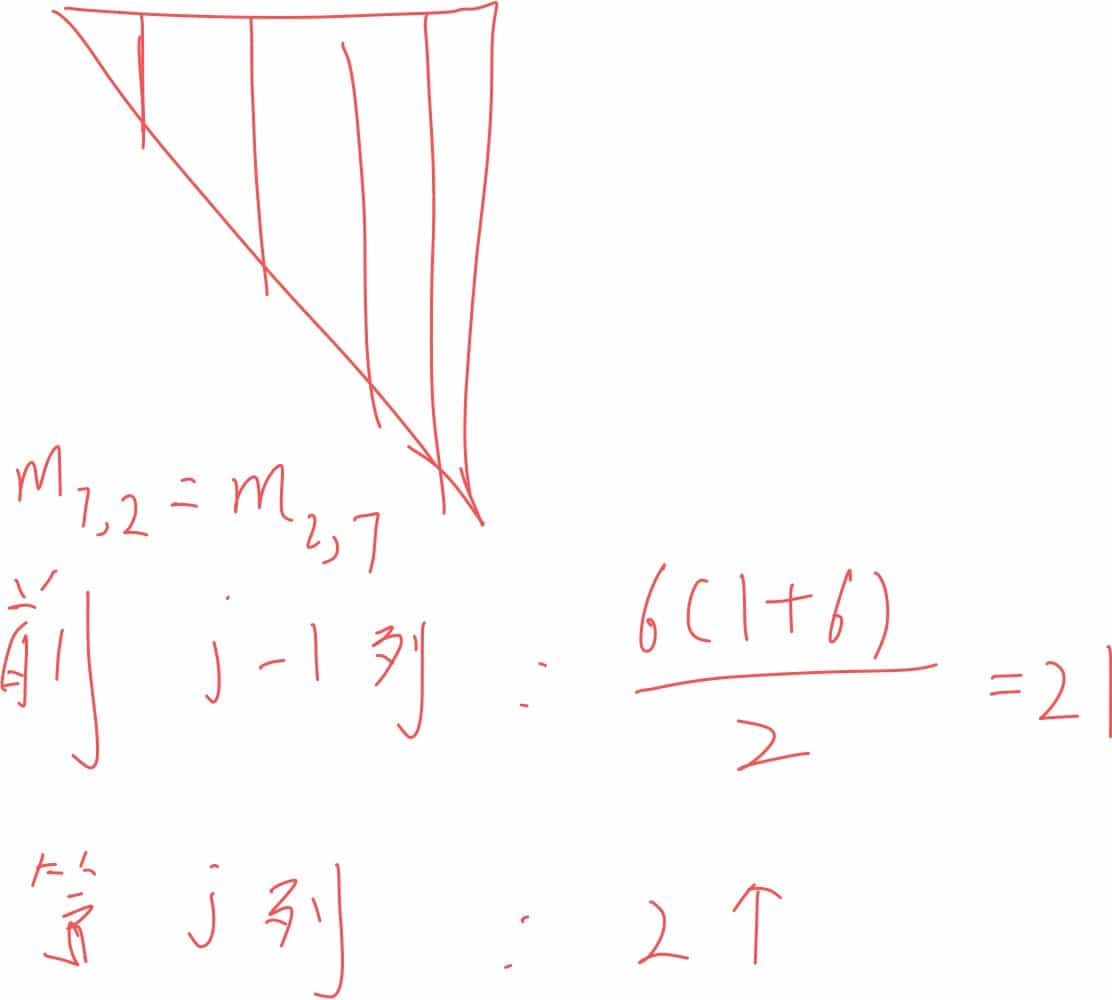 m₇,₂ = m₂,₇
前 j-1 列 : 6(1+6)/2 = 21
第 j 列 : 2个